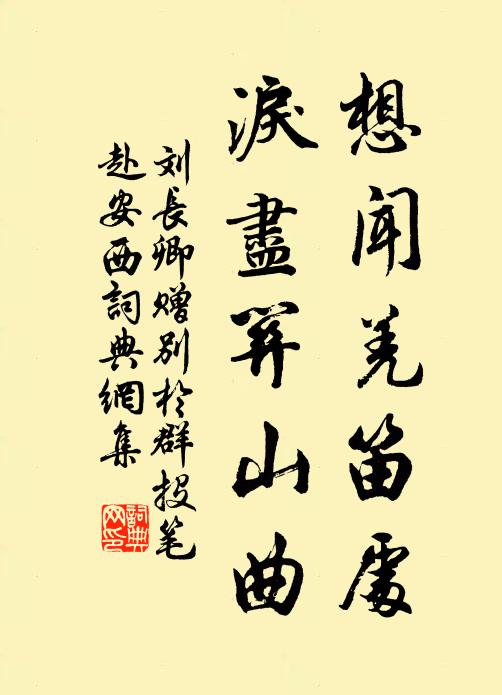 想聞羌笛處
淚盡關山曲
刘長卿赠别於群投笔
赴安西詞典網集
詞典
网印